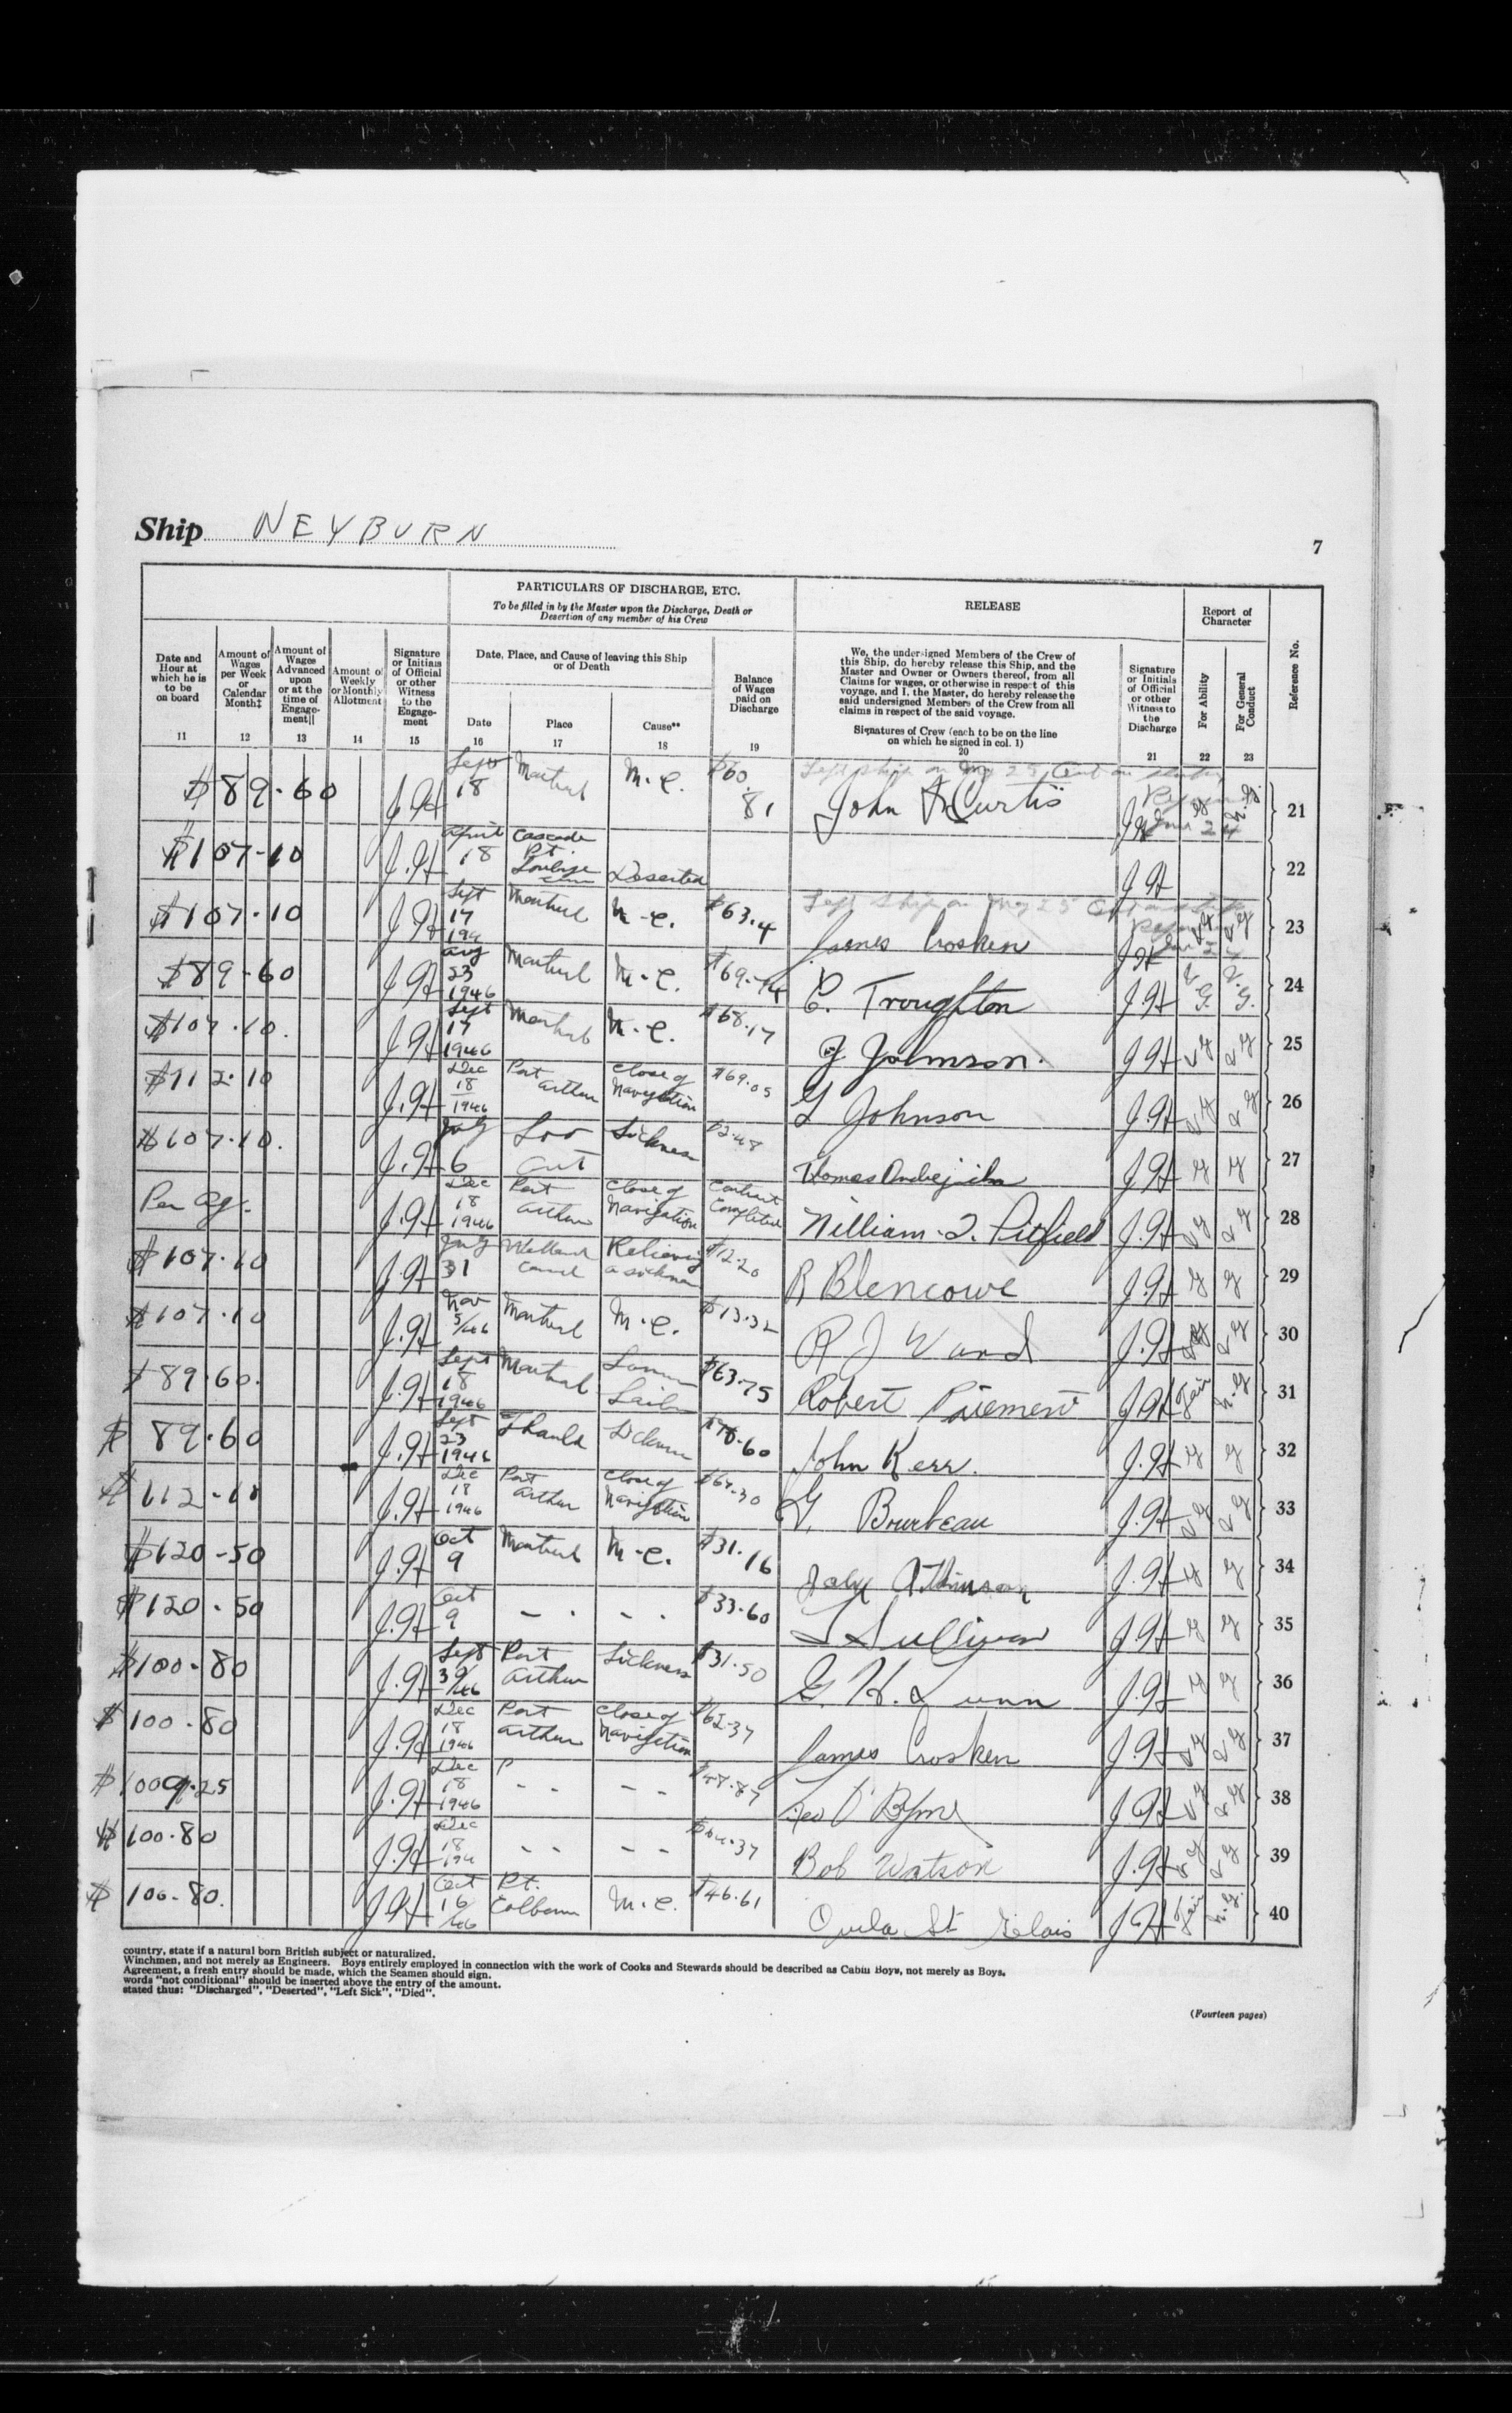 Ship NEYBURN
7
PARTICULARS OF DISCHARGE, ETC.
To be filled in by the Master upon the Discharge, Death or
Desertion of any member of his Crew
RELEASE
Report of
Character
Date and
Hour at
which he is
to be
on board
11
Amount of
Wages
per Week
or
Calendar
Month‡
12
Amount of
Wages
Advanced
upon
or at the
time of
Engage-
ment||
13
Amount of
Weekly
or Monthly
Allotment
14
Signature
or Initials
of Official
or other
Witness
to the
Engage-
ment
15
Date, Place, and Cause of leaving this Ship
or of Death
Date
16
Place
17
Cause**
18
Balance
of Wages
paid on
Discharge
19
We, the undersigned Members of the Crew of
this Ship, do hereby release this Ship, and the
Master and Owner or Owners thereof, from all
Claims for wages, or otherwise in respect of this
voyage, and I, the Master, do hereby release the
said undersigned Members of the Crew from all
claims in respect of the said voyage.
Signatures of Crew (each to be on the line
on which he signed in col. 1)
20
Signature
or Initials
of Official
or other
Witness to
the
Discharge
21
For Ability
22
For General
Conduct
23
Reference No.
Left ship on May 25
$89.60 Sept 18 Montreal M.C. $60.81 John Curtis 21
$107.10 April 18 Cascade Pt. Deserted 22
Left ship on May 25
$107.10 Sept 17 194 Montreal M.C. $63.4 James Crosken 23
$89.60 Aug 23 1946 Montreal M.C. $69.74 C. Troughton V.G. V.G. 24
$107.10. Sept 17 1946 Montreal M.C. $68.17 J Johnson. VG VG 25
$112.10 Dec 18 1946 Port Arthur Close of Navigation $69.05 G Johnson VG VG 26
$107.10. July 6 Soo Ont Sickness $2.48 G G 27
Per Ag. Dec 18 1946 Port Arthur Close of Navigation Contract Completed William. J. Pitfield VG VG 28
$107.10 July 31 Welland Canal Relieving a sickman $12.20 R Blencowe G G 29
$107.10 Nov 5/46 Montreal M.C. $13.32 R J Ward VG VG 30
$89.60. Sept 18 1946 Montreal $63.75 Robert Paiement Fair N.G 31
$89.60 Sept 23 1946 Sickness John Kerr. G G 32
$112.10 Dec 18 1946 Port Arthur Close of Navigation $67.30 G. Bourbeau VG VG 33
$120-50 Oct 9 Montreal M.C. $31.16 G G 34
$120.50 Oct 9 - . - . $33.60 Sullivan G G 35
$100-80 Sept 30/46 Port Arthur Sickness $31.50 G. H. Lunn G G 36
$100.80 Dec 18 1946 Port Arthur Close of Navigation $62.37 James Crosken VG VG 37
Dec 18 1946 - - - - O'Byrne VG VG 38
$100.80 Dec 18 194 - - - - Bob Watson VG VG 39
$100.80. Oct 16/46 Pt. Colborne M.C. $46.61 St Gelais Fair N.G. 40
country, state if a natural born British subject or naturalized.
Winchmen, and not merely as Engineers. Boys entirely employed in connection with the work of Cooks and Stewards should be described as Cabin Boys, not merely as Boys.
Agreement, a fresh entry should be made, which the Seamen should sign.
words "not conditional" should be inserted above the entry of the amount.
stated thus: "Discharged", "Deserted", "Left Sick", "Died".
(Fourteen pages)